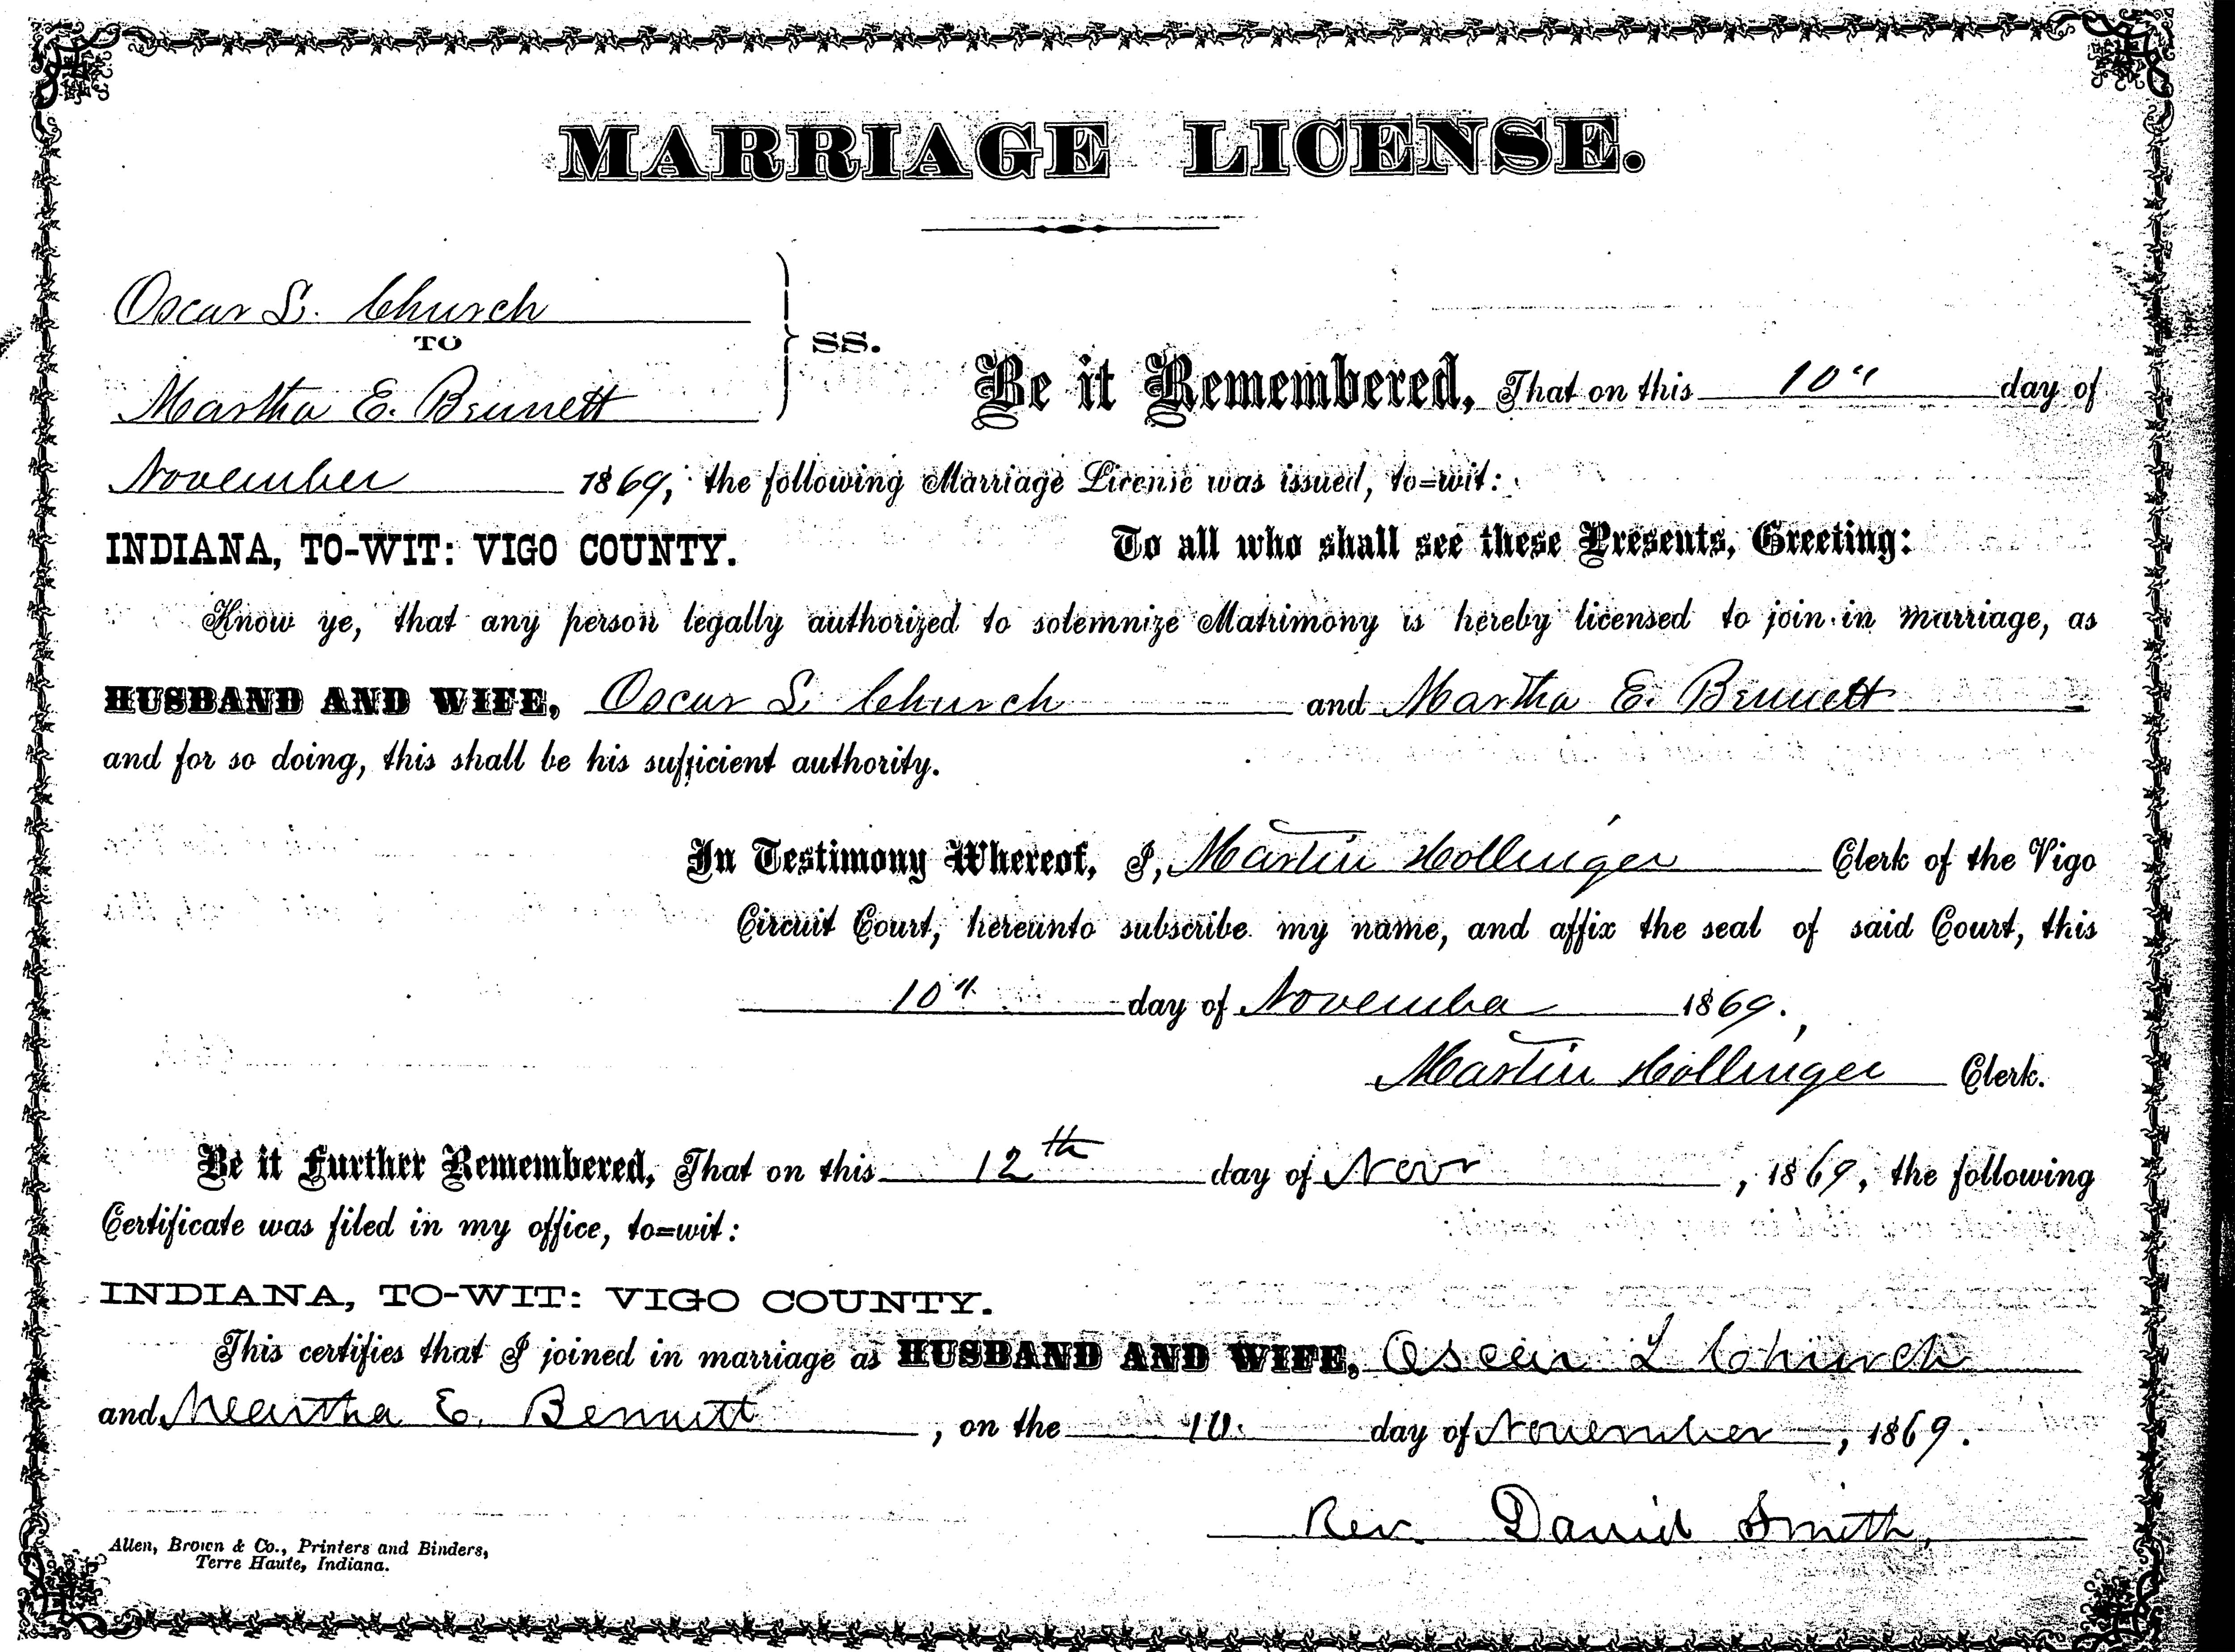 MARRIAGE LICENSE.
Oscar L. Church
TO
SS.
Martha E. Bennett
Be it Remembered, That on this 10" day of
November 1869, the following Marriage License was issued, to=wit:
INDIANA, TO-WIT: VIGO COUNTY. To all who shall see these Presents, Greeting:
Know ye, that any person legally authorized to solemnize Matrimony is hereby licensed to join in marriage, as
HUSBAND AND WIFE, Oscar L. Church and Martha E. Bennett
and for so doing, this shall be his sufficient authority.
In Testimony Whereof, I, Martin Hollinger Clerk of the Vigo
Circuit Court, hereunto subscribe my name, and affix the seal of said Court, this
10" day of November 1869.
Martin Hollinger Clerk.
Be it Further Remembered, That on this 12th day of Novr, 1869, the following
Certificate was filed in my office, to=wit:
INDIANA, TO-WIT: VIGO COUNTY.
This certifies that I joined in marriage as HUSBAND AND WIFE, Oscar L Church
and Martha E. Bennett, on the 10. day of November, 1869.
Rev. David Smith,
Allen, Brown & Co., Printers and Binders,
Terre Haute, Indiana.